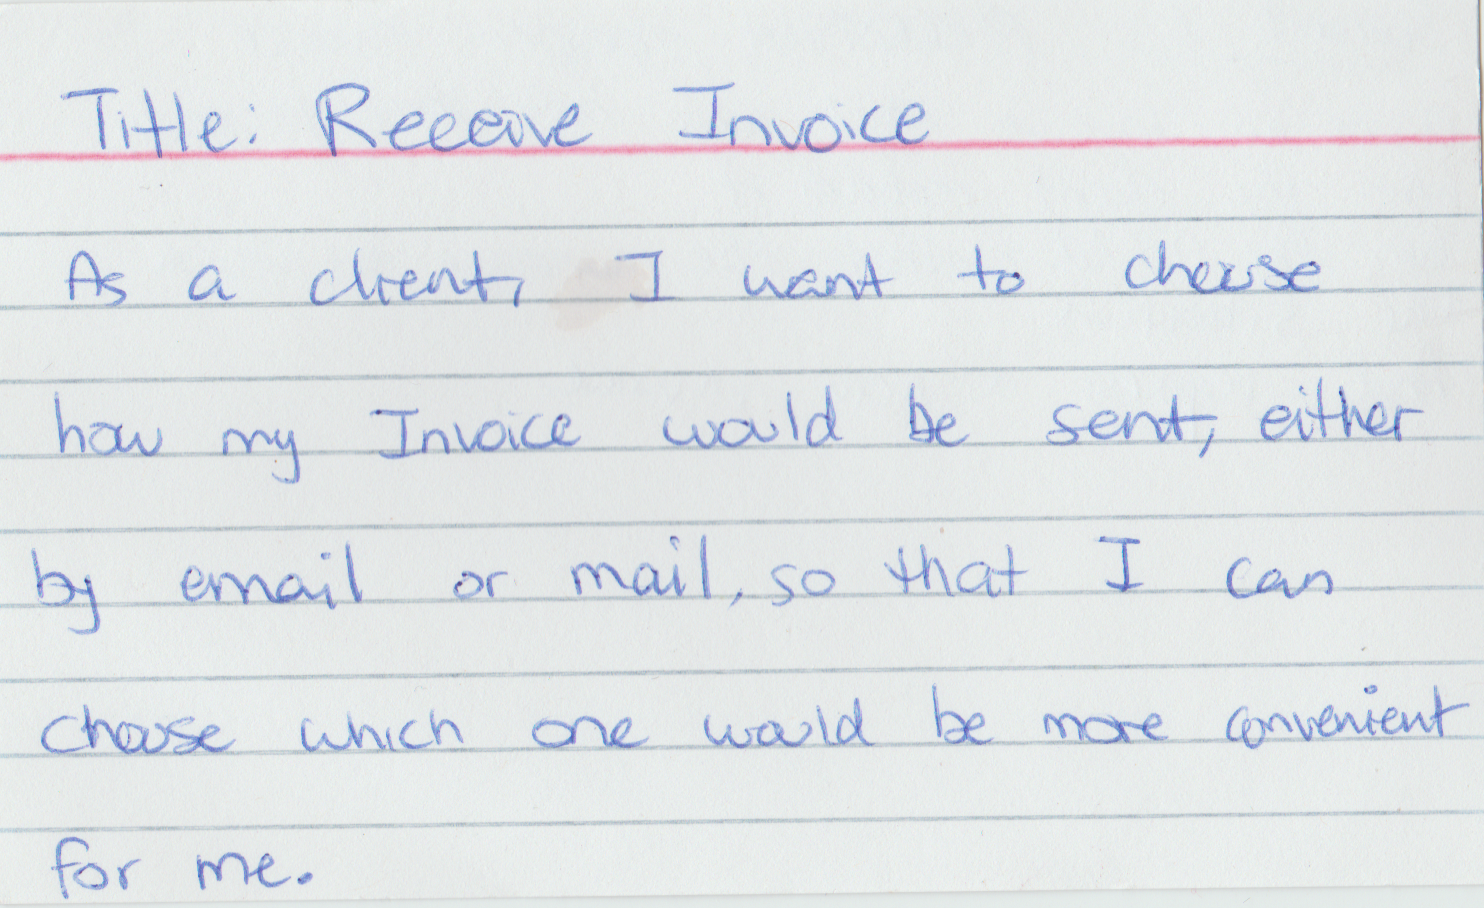 Title: Receive Invoice
As a client, I want to choose
how my Invoice would be sent, either
by email or mail, so that I can
choose which one would be more convenient
for me.